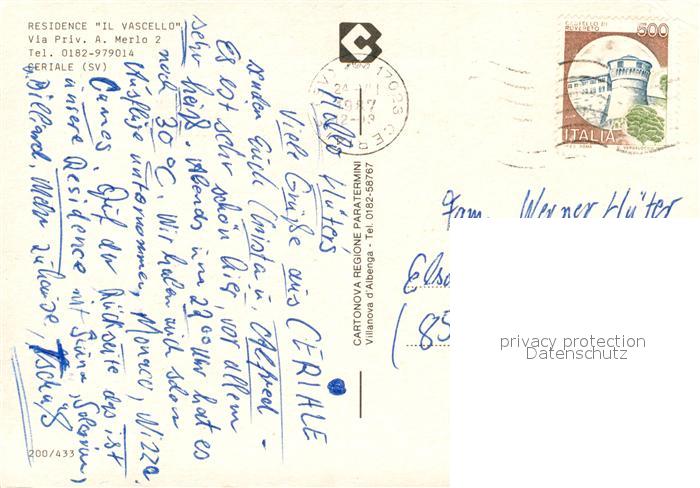 RESIDENCE "IL VASCELLO"
Via Priv. A. Merlo 2
Tel. 0182-979014
CERIALE (SV)
Hallo Hüters
Viele Grüße aus CERIALE
senden Euch Christa u. Alfred -
Es ist sehr schön hier, vor allem
sehr heiß. Abends um 22 00 Uhr hat es
noch 30°C. Wir haben auch schon
Ausflüge unternommen, Monaco, Nizza
Cannes. Auf der Rückseite das ist
unsere Residence mit Sauna, Solarium,
Billiard, Mehr zuhause, Tschüß
200/433
CARTONOVA REGIONE PARATERMINI
Villanova d'Albenga - Tel. 0182-58767
17023 CE
24
1987
12-
CASTELLO DI
ROVERETO
500
ITALIA
Fam. Werner Hüter
(85
privacy protection
Datenschutz